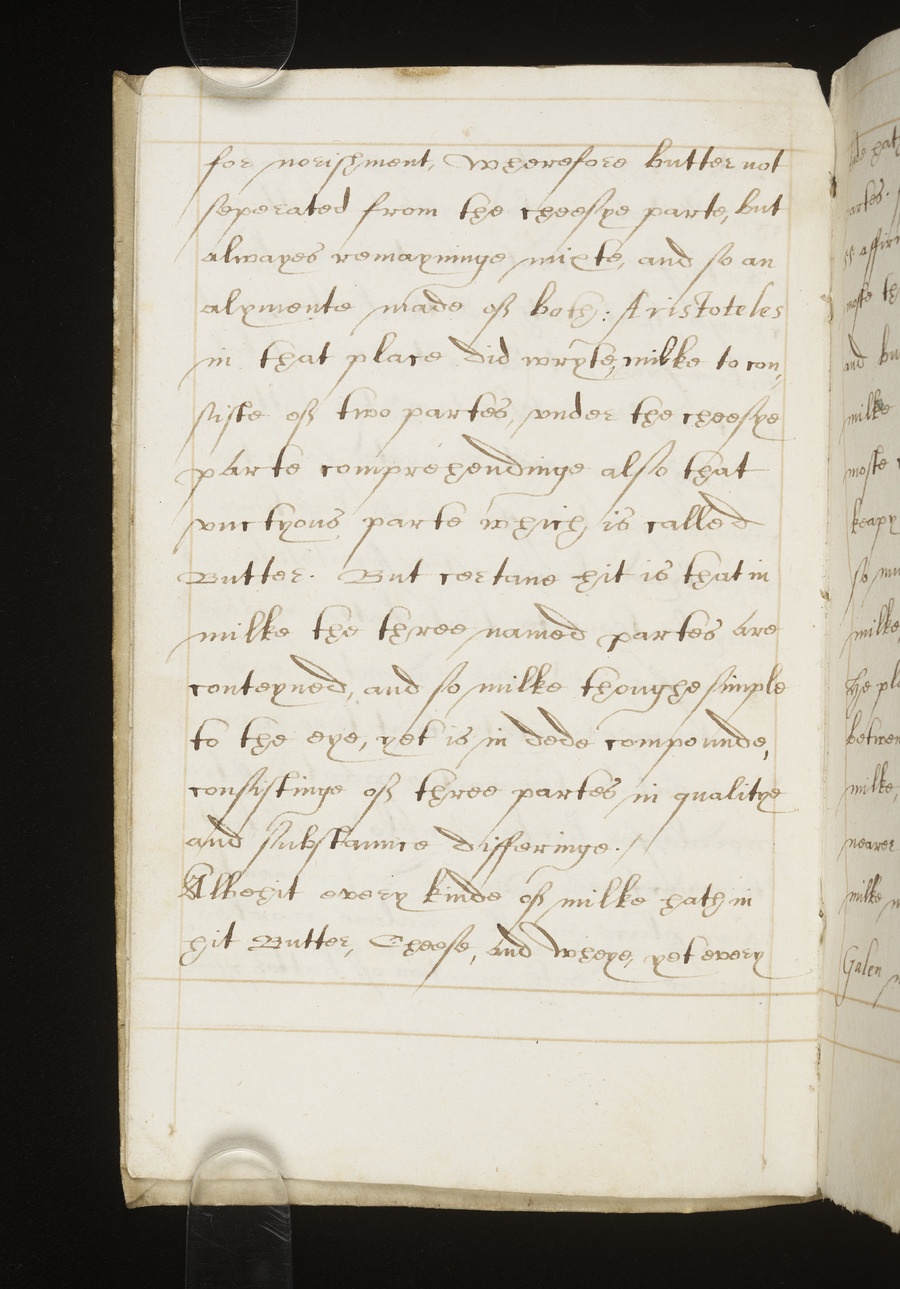 for norishment, Wherefore butter not
seperated from the cheesye parte, but
alwayes remayninge mixte, and so an
alymente made of both: Aristoteles
in that place did wryte, milke to con,
siste of two partes, vnder the cheesye
parte comprehendinge also that
vnctyous parte which is called
Butter. But certane hit is that in
milke the three named partes are
conteyned, and so milke thoughe simple
to the eye, yet is in dede compounde,
consistinge of three partes in qualitye
and substaunce differinge./
Albehit every kinde of milke hath in
hit Butter, Cheese, and Wheye, yet every
hath
partes.
affir
moste th
and bu
milke
moste
keapy
so mu
milke,
he pla
betwen
milke,
nearer
milke
Galen